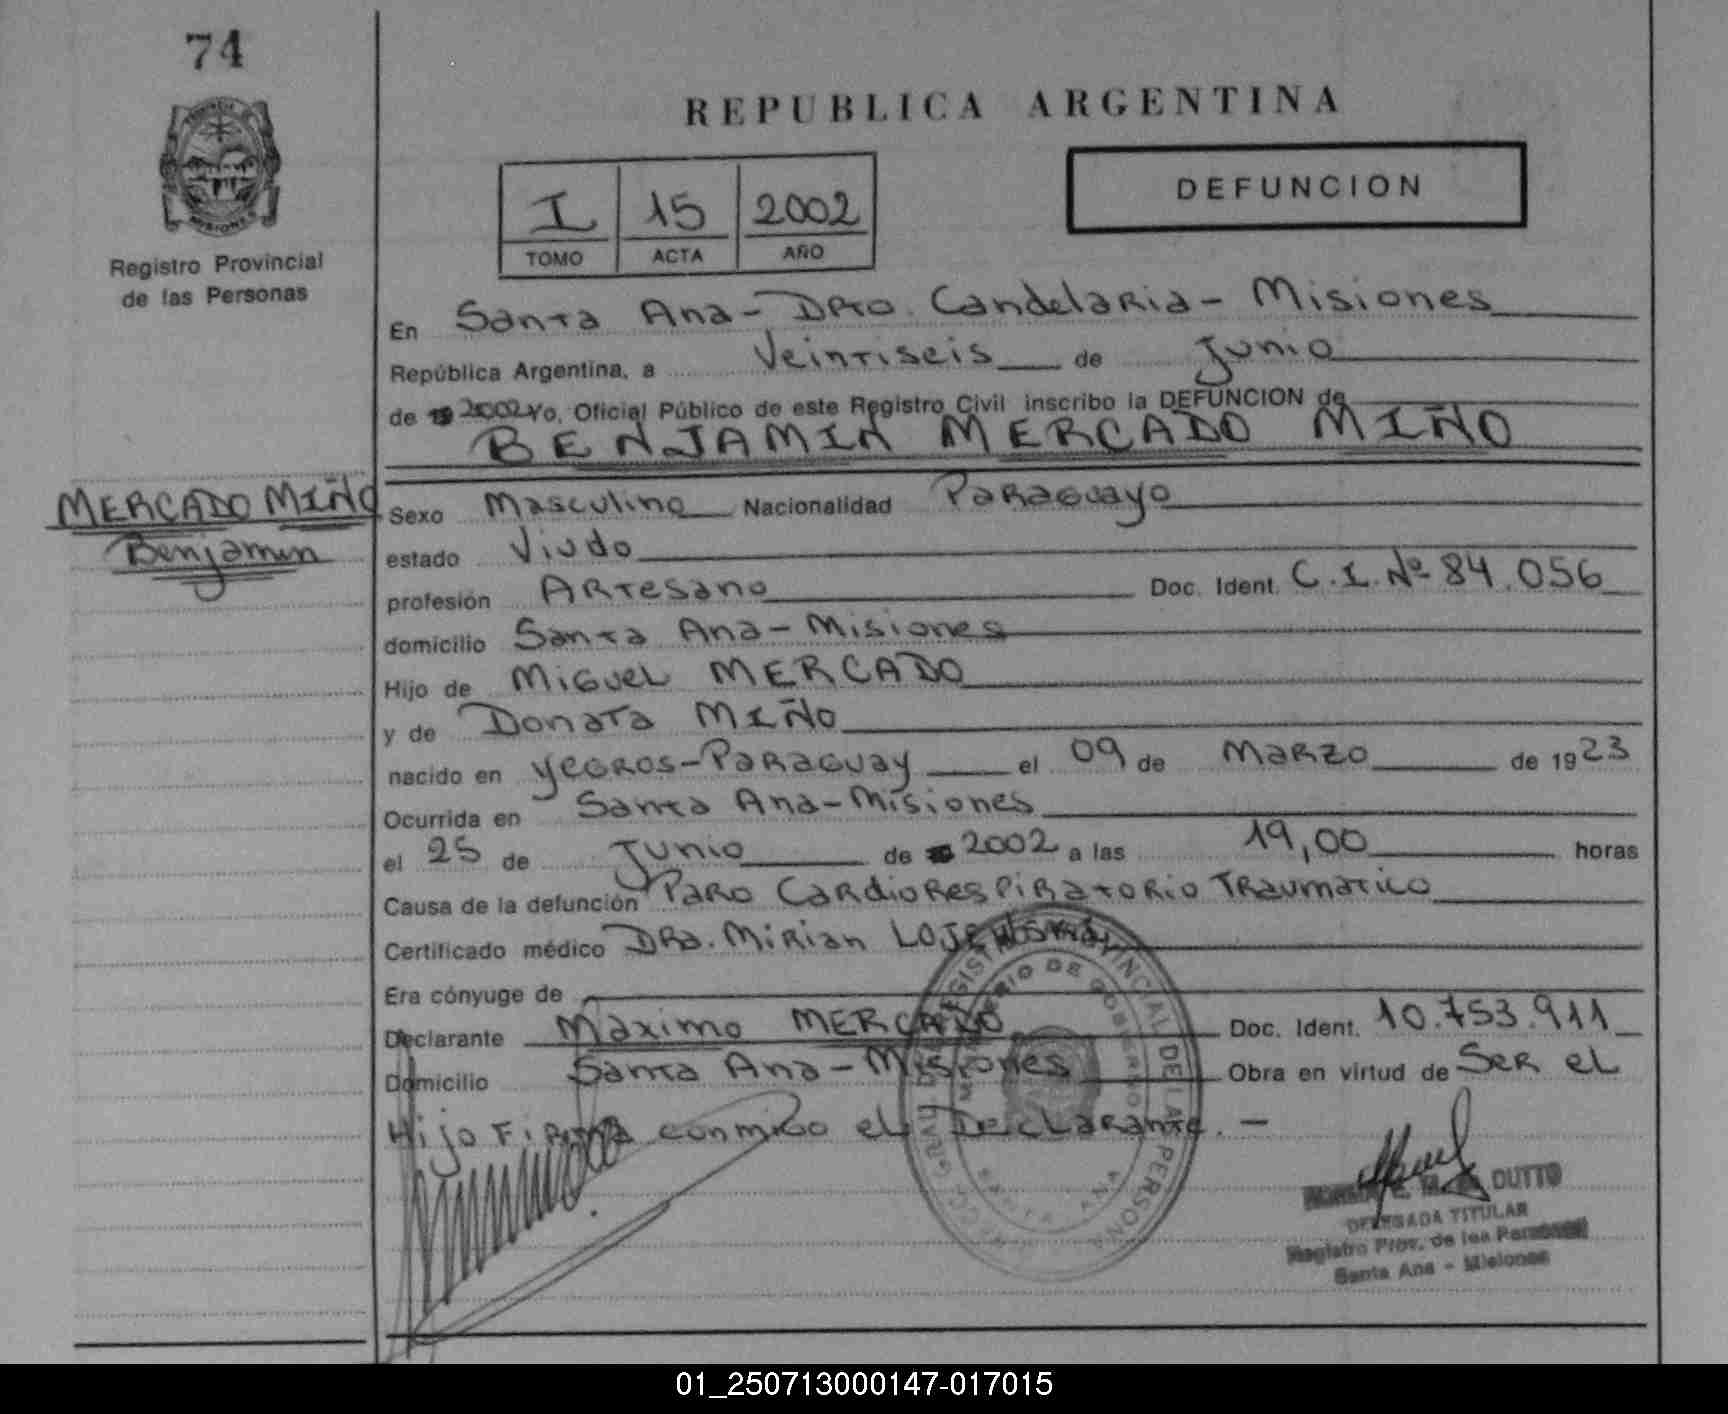 74
REPUBLICA ARGENTINA
DEFUNCION
I 15 2002
TOMO ACTA AÑO
MISIONES
Registro Provincial
de las Personas
En Santa Ana - Dpto. Candelaria - Misiones
República Argentina, a Veintiseis de Junio
de 2002 Yo, Oficial Público de este Registro Civil inscribo la DEFUNCION de
BENJAMIN MERCADO MIÑO
MERCADO MIÑO
Benjamin
Sexo Masculino Nacionalidad Paraguayo
estado Viudo
profesión Artesano Doc. Ident. C.I. Nº 84.056
domicilio Santa Ana - Misiones
Hijo de Miguel MERCADO
y de Donata MIÑO
nacido en Yegros - Paraguay el 09 de Marzo de 1923
Ocurrida en Santa Ana - Misiones
el 25 de Junio de 2002 a las 19,00 horas
Causa de la defunción Paro Cardiorespiratorio Traumatico
Certificado médico Dra. Mirian
Era cónyuge de
Declarante Maximo MERCADO Doc. Ident. 10.753.911
Domicilio Santa Ana - Misiones Obra en virtud de Ser el
Hijo Firma conmigo el Declarante. -
REGISTRO PROVINCIAL DE LAS PERSONAS
MINISTERIO DE GOBIERNO
SANTA ANA
DUTTO
DELEGADA TITULAR
Registro Prov. de las Personas
Santa Ana - Misiones
01_250713000147-017015